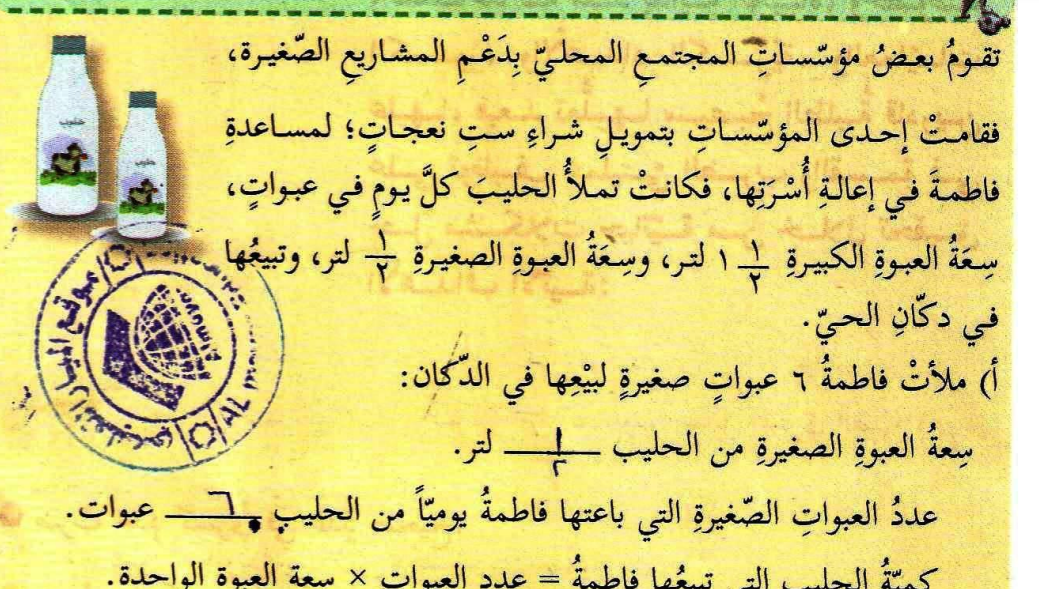 تقومُ بعضُ مؤسّساتِ المجتمعِ المحليّ بِدَعْمِ المشاريعِ الصّغيرة،
فقامتْ إحدى المؤسّساتِ بتمويلِ شراءِ ستِ نعجاتٍ؛ لمساعدةِ
فاطمةَ في إعالةِ أُسْرَتِها، فكانتْ تملأُ الحليبَ كلَّ يومٍ في عبواتٍ،
سِعَةُ العبوةِ الكبيرةِ ١ ١/٢ لتر، وسِعَةُ العبوةِ الصغيرةِ ١/٢ لتر، وتبيعُها
في دكّانِ الحيّ.
أ) ملأتْ فاطمةُ ٦ عبواتٍ صغيرةٍ لبيْعِها في الدّكّان:
سِعةُ العبوةِ الصغيرةِ من الحليب ١/٢ لتر.
عددُ العبواتِ الصّغيرةِ التي باعتها فاطمةُ يوميّاً من الحليب ٦ عبوات.
كميّةُ الحليبِ التي تبيعُها فاطمةُ = عدد العبوات × سعة العبوة الواحدة.
حليب
حليب
موقع المنار التعليمي
AL